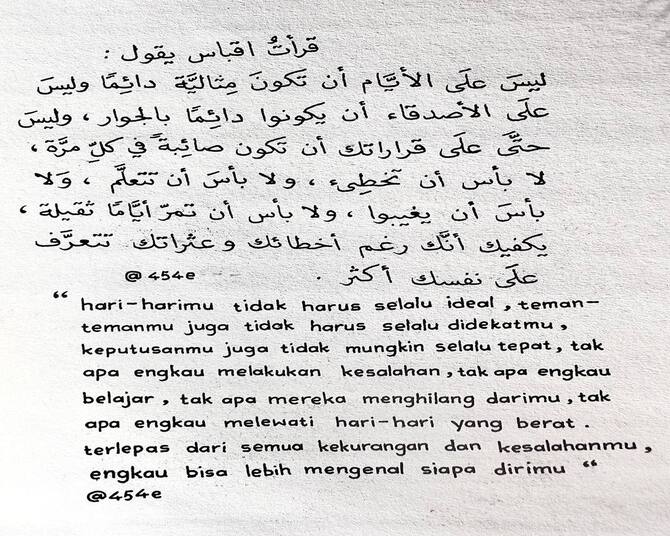 قرأتُ اقباس يقول :
ليسَ علَى الأيَّام أن تَكونَ مِثاليَّة دائِمًا وليسَ
علَى الأصدقاء أن يكونوا دائِمًا بالجوار ، وليسَ
حتَّى علَى قراراتك أن تَكون صائِبةً في كلِّ مرَّة ،
لا بأس أن تُخطِىء ، ولا بأسَ أن تتعلَّم ، وَلا
بأسَ أن يغيبوا ، ولا بأس أن تمرّ أيَّامًا ثَقيلة ،
يكفيك أنَّك رغم أخطائك وعثراتك تتعرَّف
علَى نفسك أكثر .
@454e
“ hari-harimu tidak harus selalu ideal, teman-
temanmu juga tidak harus selalu didekatmu,
keputusanmu juga tidak mungkin selalu tepat, tak
apa engkau melakukan kesalahan, tak apa engkau
belajar, tak apa mereka menghilang darimu, tak
apa engkau melewati hari-hari yang berat.
terlepas dari semua kekurangan dan kesalahanmu,
engkau bisa lebih mengenal siapa dirimu “
@454e